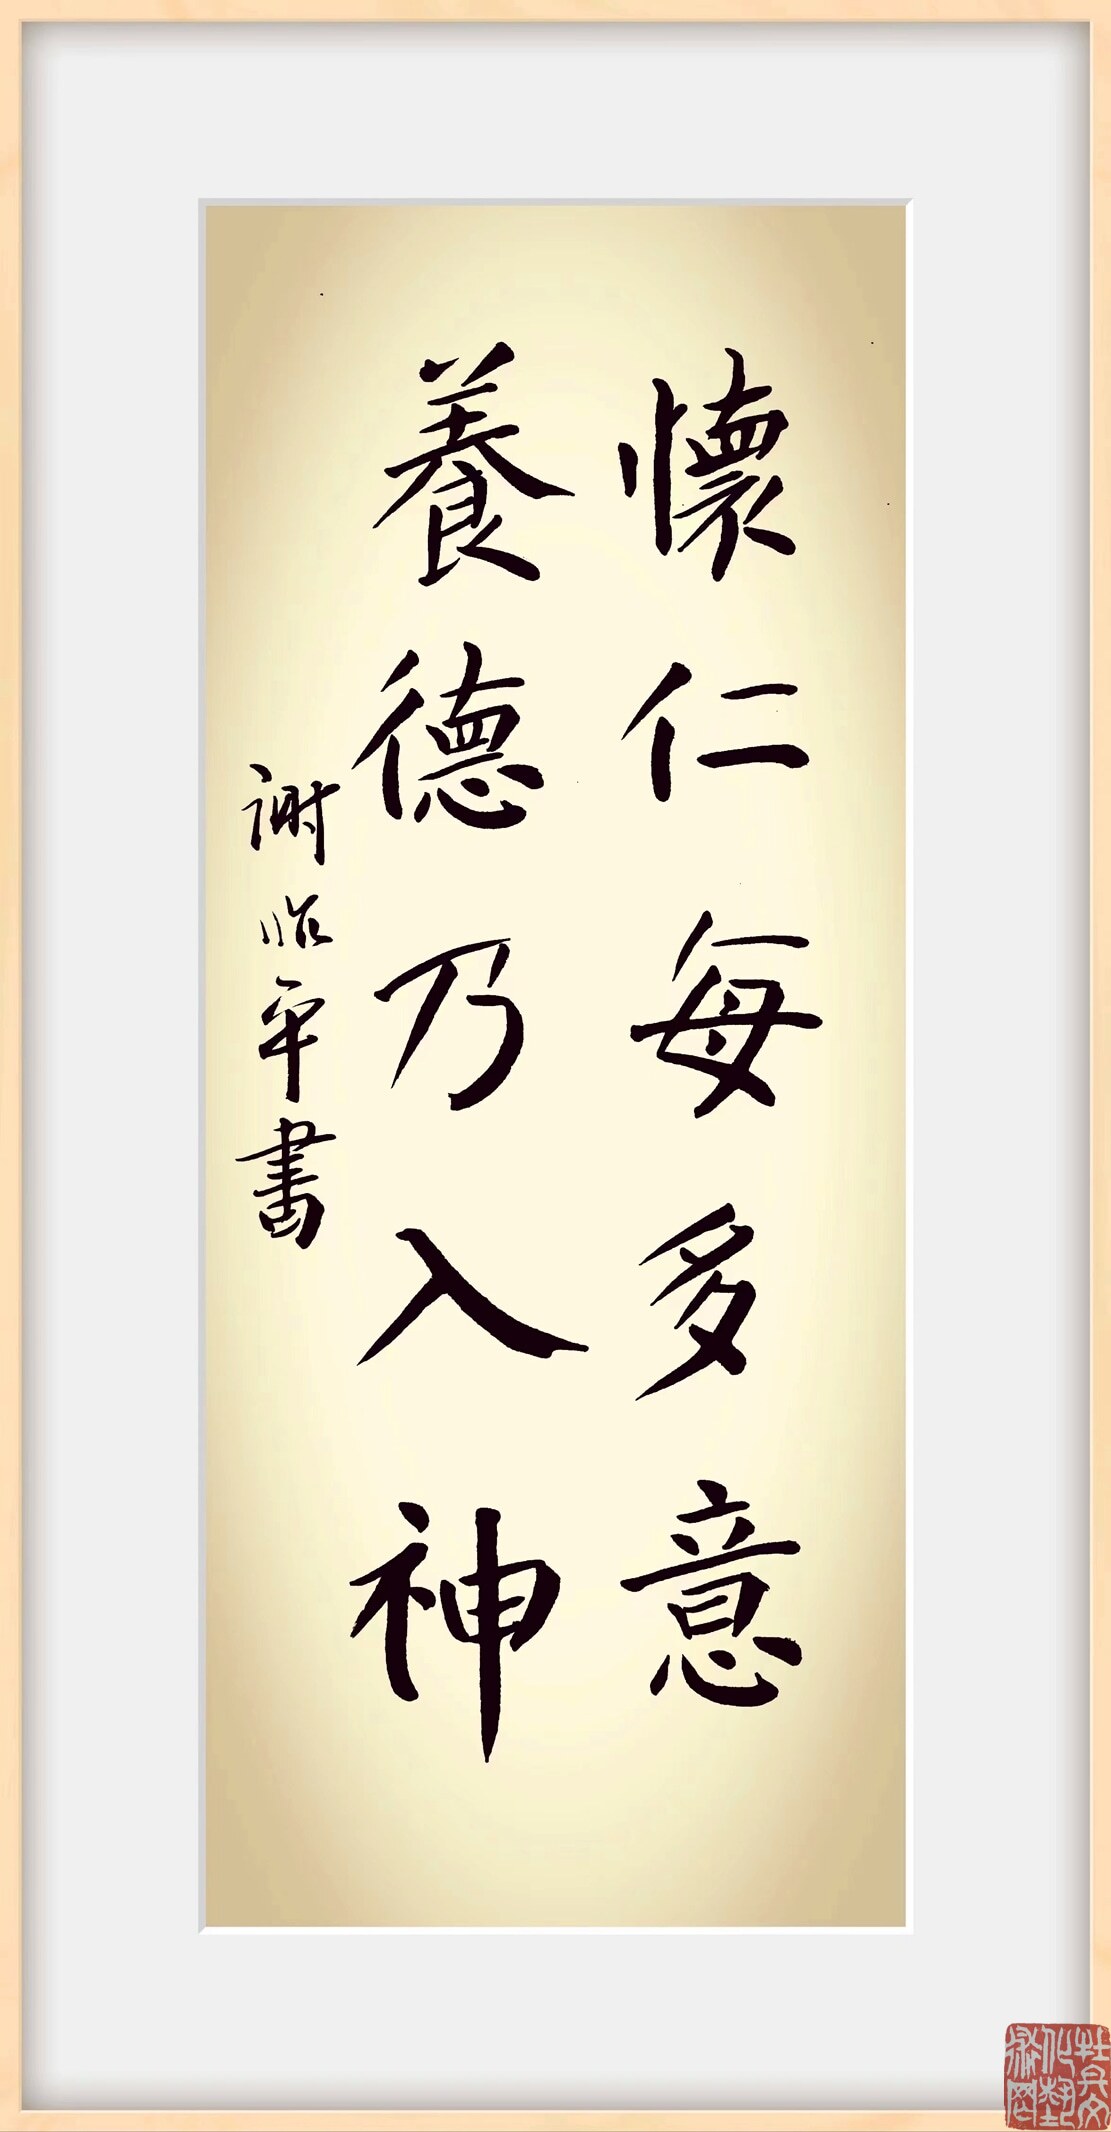 懷仁每多意
養德乃入神
謝临平書